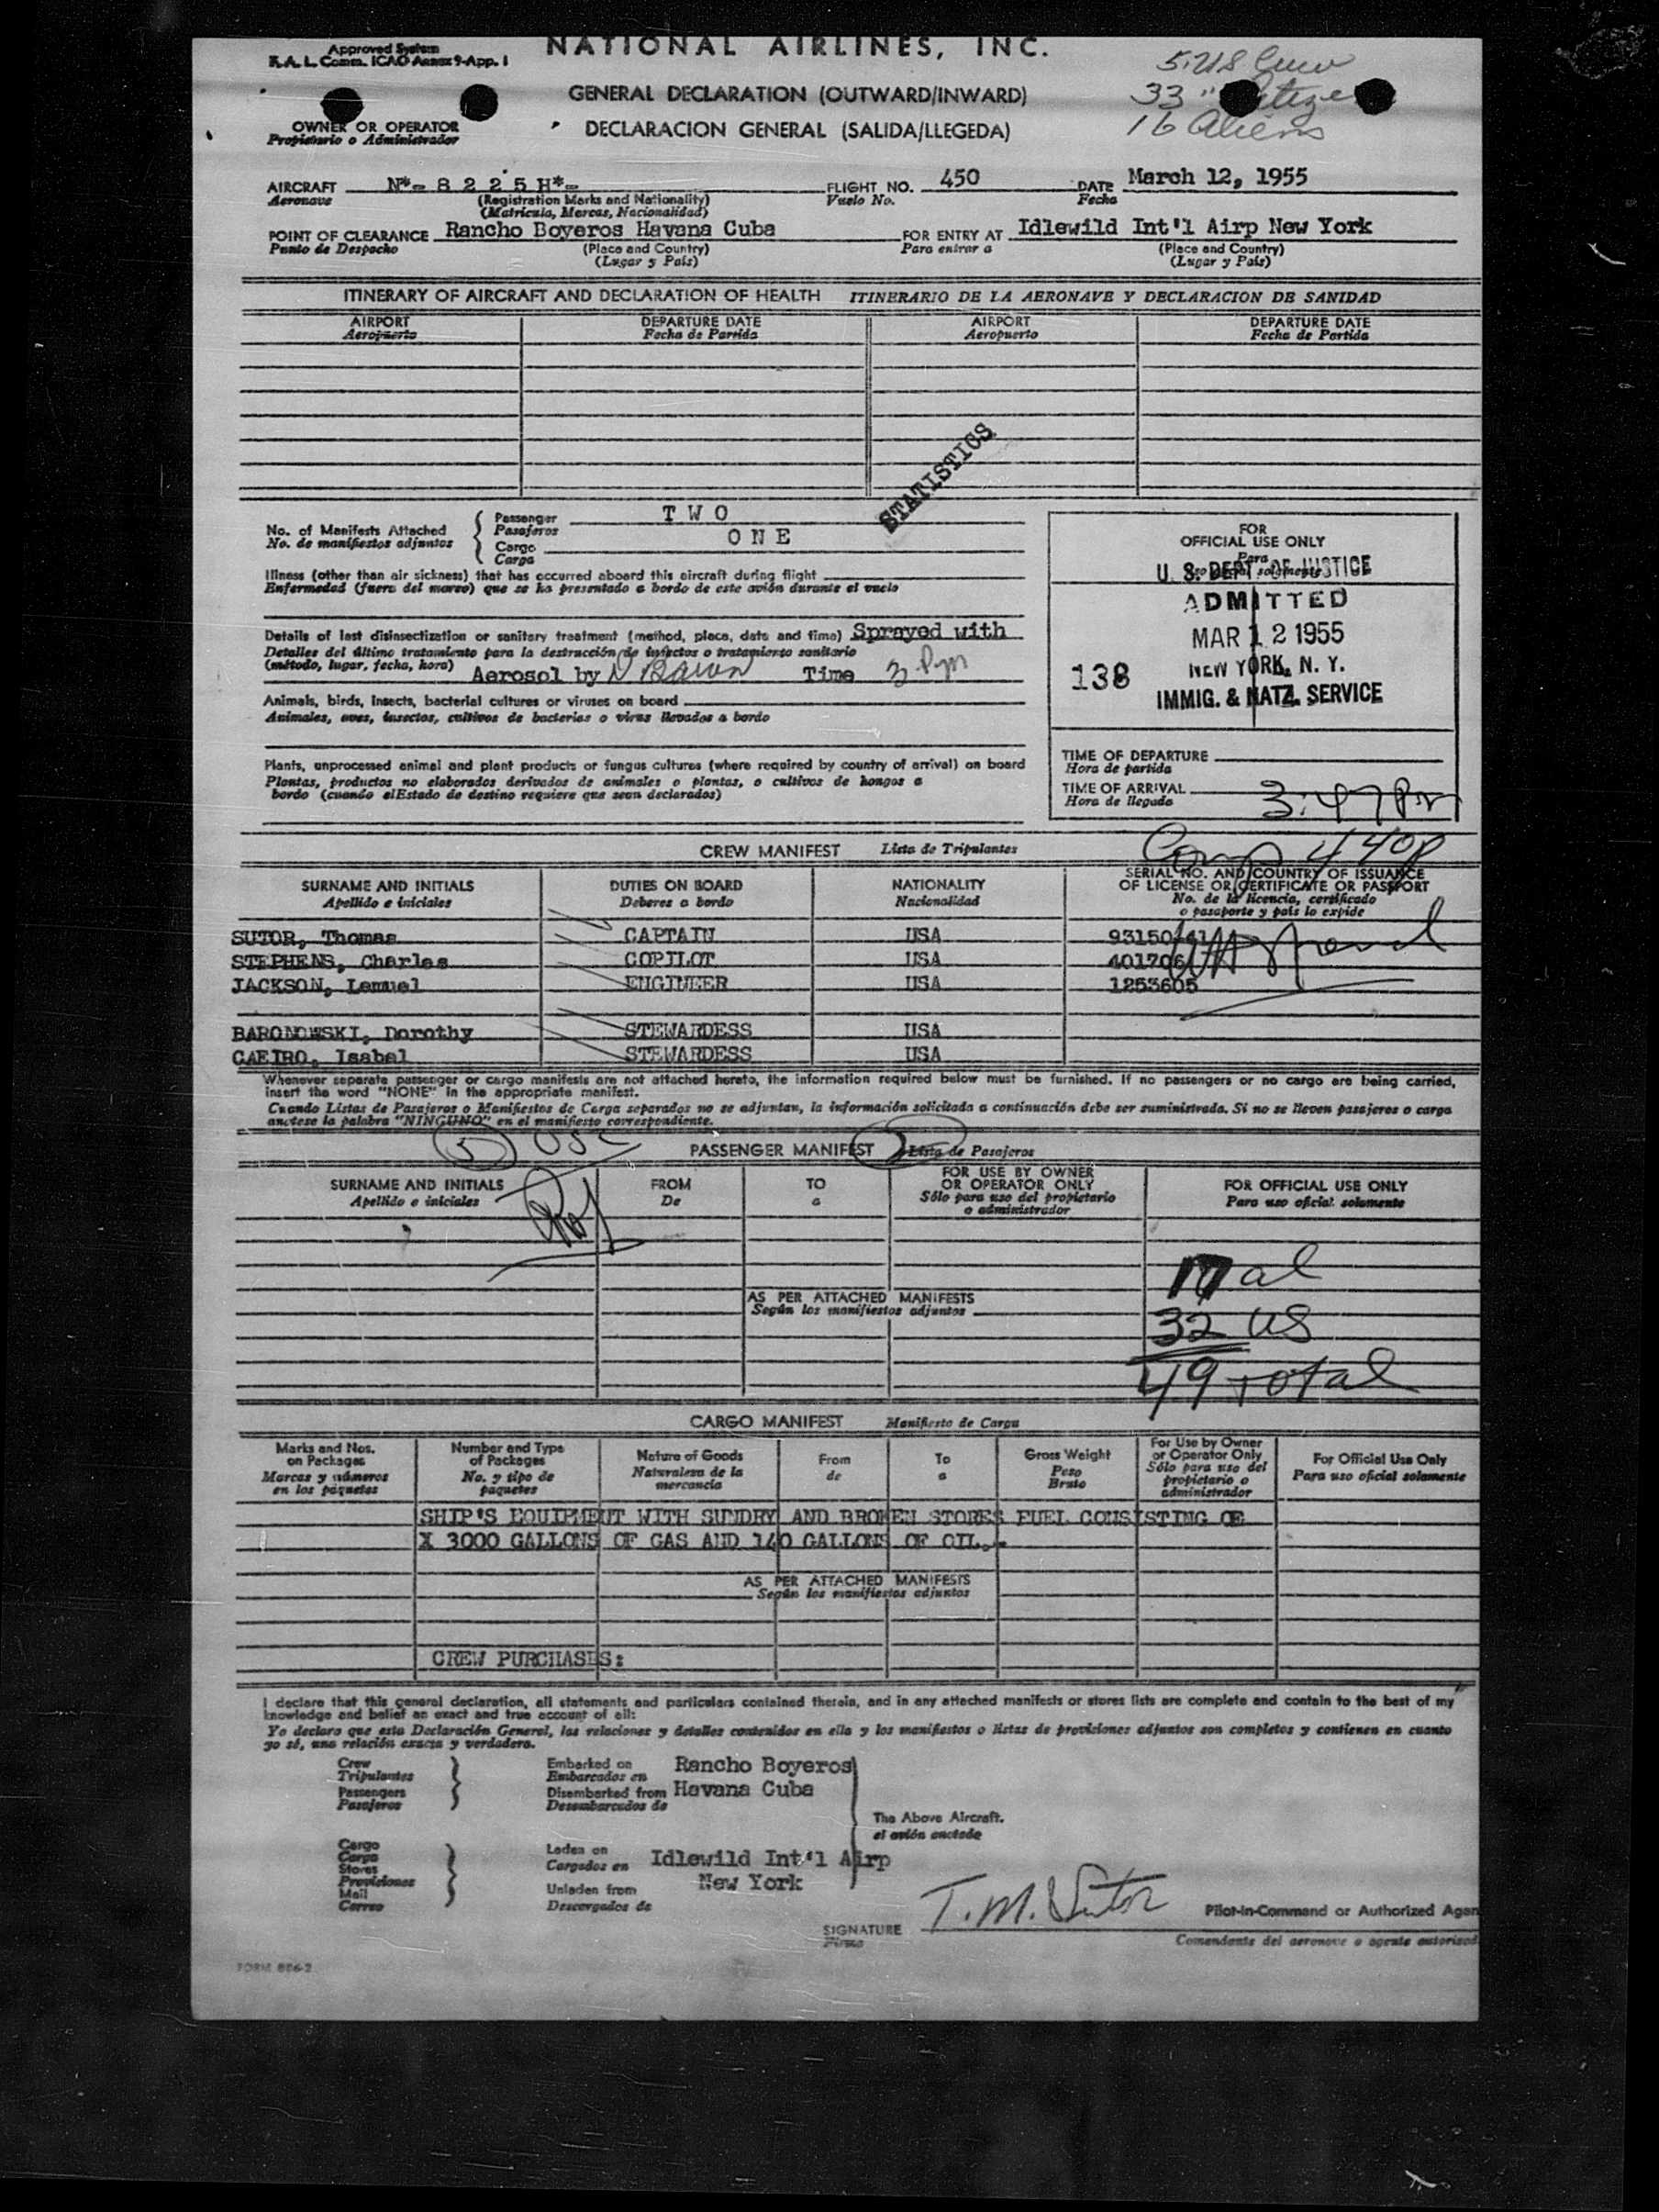 Approved System
F.A.L. Comm. ICAO Annex 9-App. 1
NATIONAL AIRLINES, INC.
5 US Crew
33 " Citizen
16 Aliens
GENERAL DECLARATION (OUTWARD/INWARD)
DECLARACION GENERAL (SALIDA/LLEGEDA)
OWNER OR OPERATOR
Propietario o Administrador
AIRCRAFT N*- 8 2 2 5 H*- FLIGHT NO. 450 DATE March 12, 1955
Aeronave (Registration Marks and Nationality) Vuelo No. Fecha
(Matricula, Mercas, Nacionalidad)
POINT OF CLEARANCE Rancho Boyeros Havana Cuba FOR ENTRY AT Idlewild Int'l Airp New York
Punto de Despacho (Place and Country) Para entrar a (Place and Country)
(Lugar y País) (Lugar y País)
ITINERARY OF AIRCRAFT AND DECLARATION OF HEALTH ITINERARIO DE LA AERONAVE Y DECLARACION DE SANIDAD
AIRPORT DEPARTURE DATE AIRPORT DEPARTURE DATE
Aeropuerto Fecha de Partida Aeropuerto Fecha de Partida
STATISTICS
No. of Manifests Attached Passenger T W O
No. de manifiestos adjuntos Pasajeros
Cargo O N E
Carga
Illness (other than air sickness) that has occurred aboard this aircraft during flight
Enfermedad (fuera del mareo) que se ha presentado a bordo de este avión durante el vuelo
Details of last disinsectization or sanitary treatment (method, place, date and time) Sprayed with
Detalles del último tratamiento para la destrucción de insectos o tratamiento sanitario
(método, lugar, fecha, hora) Aerosol by Time 3 Pm
Animals, birds, insects, bacterial cultures or viruses on board
Animales, aves, insectos, cultivos de bacterias o virus llevados a bordo
Plants, unprocessed animal and plant products or fungus cultures (where required by country of arrival) on board
Plantas, productos no elaborados derivados de animales o plantas, o cultivos de hongos a
bordo (cuando el Estado de destino requiere que sean declarados)
FOR
OFFICIAL USE ONLY
Para
uso oficial solamente
U. S. DEPT. OF JUSTICE
ADMITTED
MAR 12 1955
138 NEW YORK, N. Y.
IMMIG. & NATZ. SERVICE
TIME OF DEPARTURE
Hora de partida
TIME OF ARRIVAL 3:47 Pm
Hora de llegada
Comp 440p
CREW MANIFEST Lista de Tripulantes
SURNAME AND INITIALS DUTIES ON BOARD NATIONALITY SERIAL NO. AND COUNTRY OF ISSUANCE
OF LICENSE OR CERTIFICATE OR PASSPORT
Apellido e iniciales Deberes a bordo Nacionalidad No. de la licencia, certificado
o pasaporte y país lo expide
SUTOR, Thomas CAPTAIN USA
STEPHENS, Charles COPILOT USA
JACKSON, Lemuel ENGINEER USA 1253605
BARONOWSKI, Dorothy STEWARDESS USA
CAEIRO, Isabel STEWARDESS USA
Whenever separate passenger or cargo manifests are not attached hereto, the information required below must be furnished. If no passengers or no cargo are being carried,
insert the word "NONE" in the appropriate manifest.
Cuando Listas de Pasajeros o Manifiestos de Carga separados no se adjuntan, la información solicitada a continuación debe ser suministrada. Si no se lleven pasajeros o carga
anotese la palabra "NINGUNO" en el manifiesto correspondiente.
5 USC
PASSENGER MANIFEST Lista de Pasajeros
SURNAME AND INITIALS FROM TO FOR USE BY OWNER
OR OPERATOR ONLY FOR OFFICIAL USE ONLY
Apellido e iniciales De a Sólo para uso del propietario
o administrador Para uso oficial solamente
17 al
AS PER ATTACHED MANIFESTS
Según los manifiestos adjuntos
32 US
49 total
CARGO MANIFEST Manifiesto de Carga
Marks and Nos.
on Packages
Marcas y números
en los paquetes
Number and Type
of Packages
No. y tipo de
paquetes
Nature of Goods
Naturaleza de la
mercancia
From
de
To
a
Gross Weight
Peso
Bruto
For Use by Owner
or Operator Only
Sólo para uso del
propietario o
administrador
For Official Use Only
Para uso oficial solamente
SHIP'S EQUIPMENT WITH SUNDRY AND BROKEN STORES FUEL CONSISTING OF
X 3000 GALLONS OF GAS AND 140 GALLONS OF OIL.-
AS PER ATTACHED MANIFESTS
Según los manifiestos adjuntos
CREW PURCHASES:
I declare that this general declaration, all statements and particulars contained therein, and in any attached manifests or stores lists are complete and contain to the best of my
knowledge and belief an exact and true account of all:
Yo declaro que esta Declaración General, las relaciones y detalles contenidos en ella y los manifiestos o listas de provisiones adjuntos son completos y contienen en cuanto
yo sé, una relación exacta y verdadera.
Crew
Tripulantes
Passengers
Pasajeros
Embarked on Rancho Boyeros
Embarcados en
Disembarked from Havana Cuba
Desembarcados de
The Above Aircraft.
el avión anotado
Cargo
Carga
Stores
Provisiones
Mail
Correo
Laden on
Cargados en Idlewild Int'l Airp
New York
Unladen from
Descargados de
SIGNATURE T. M. Sutor Pilot-in-Command or Authorized Agen
Firma Comandante del aeronave o agente autorizad
FORM 806-2